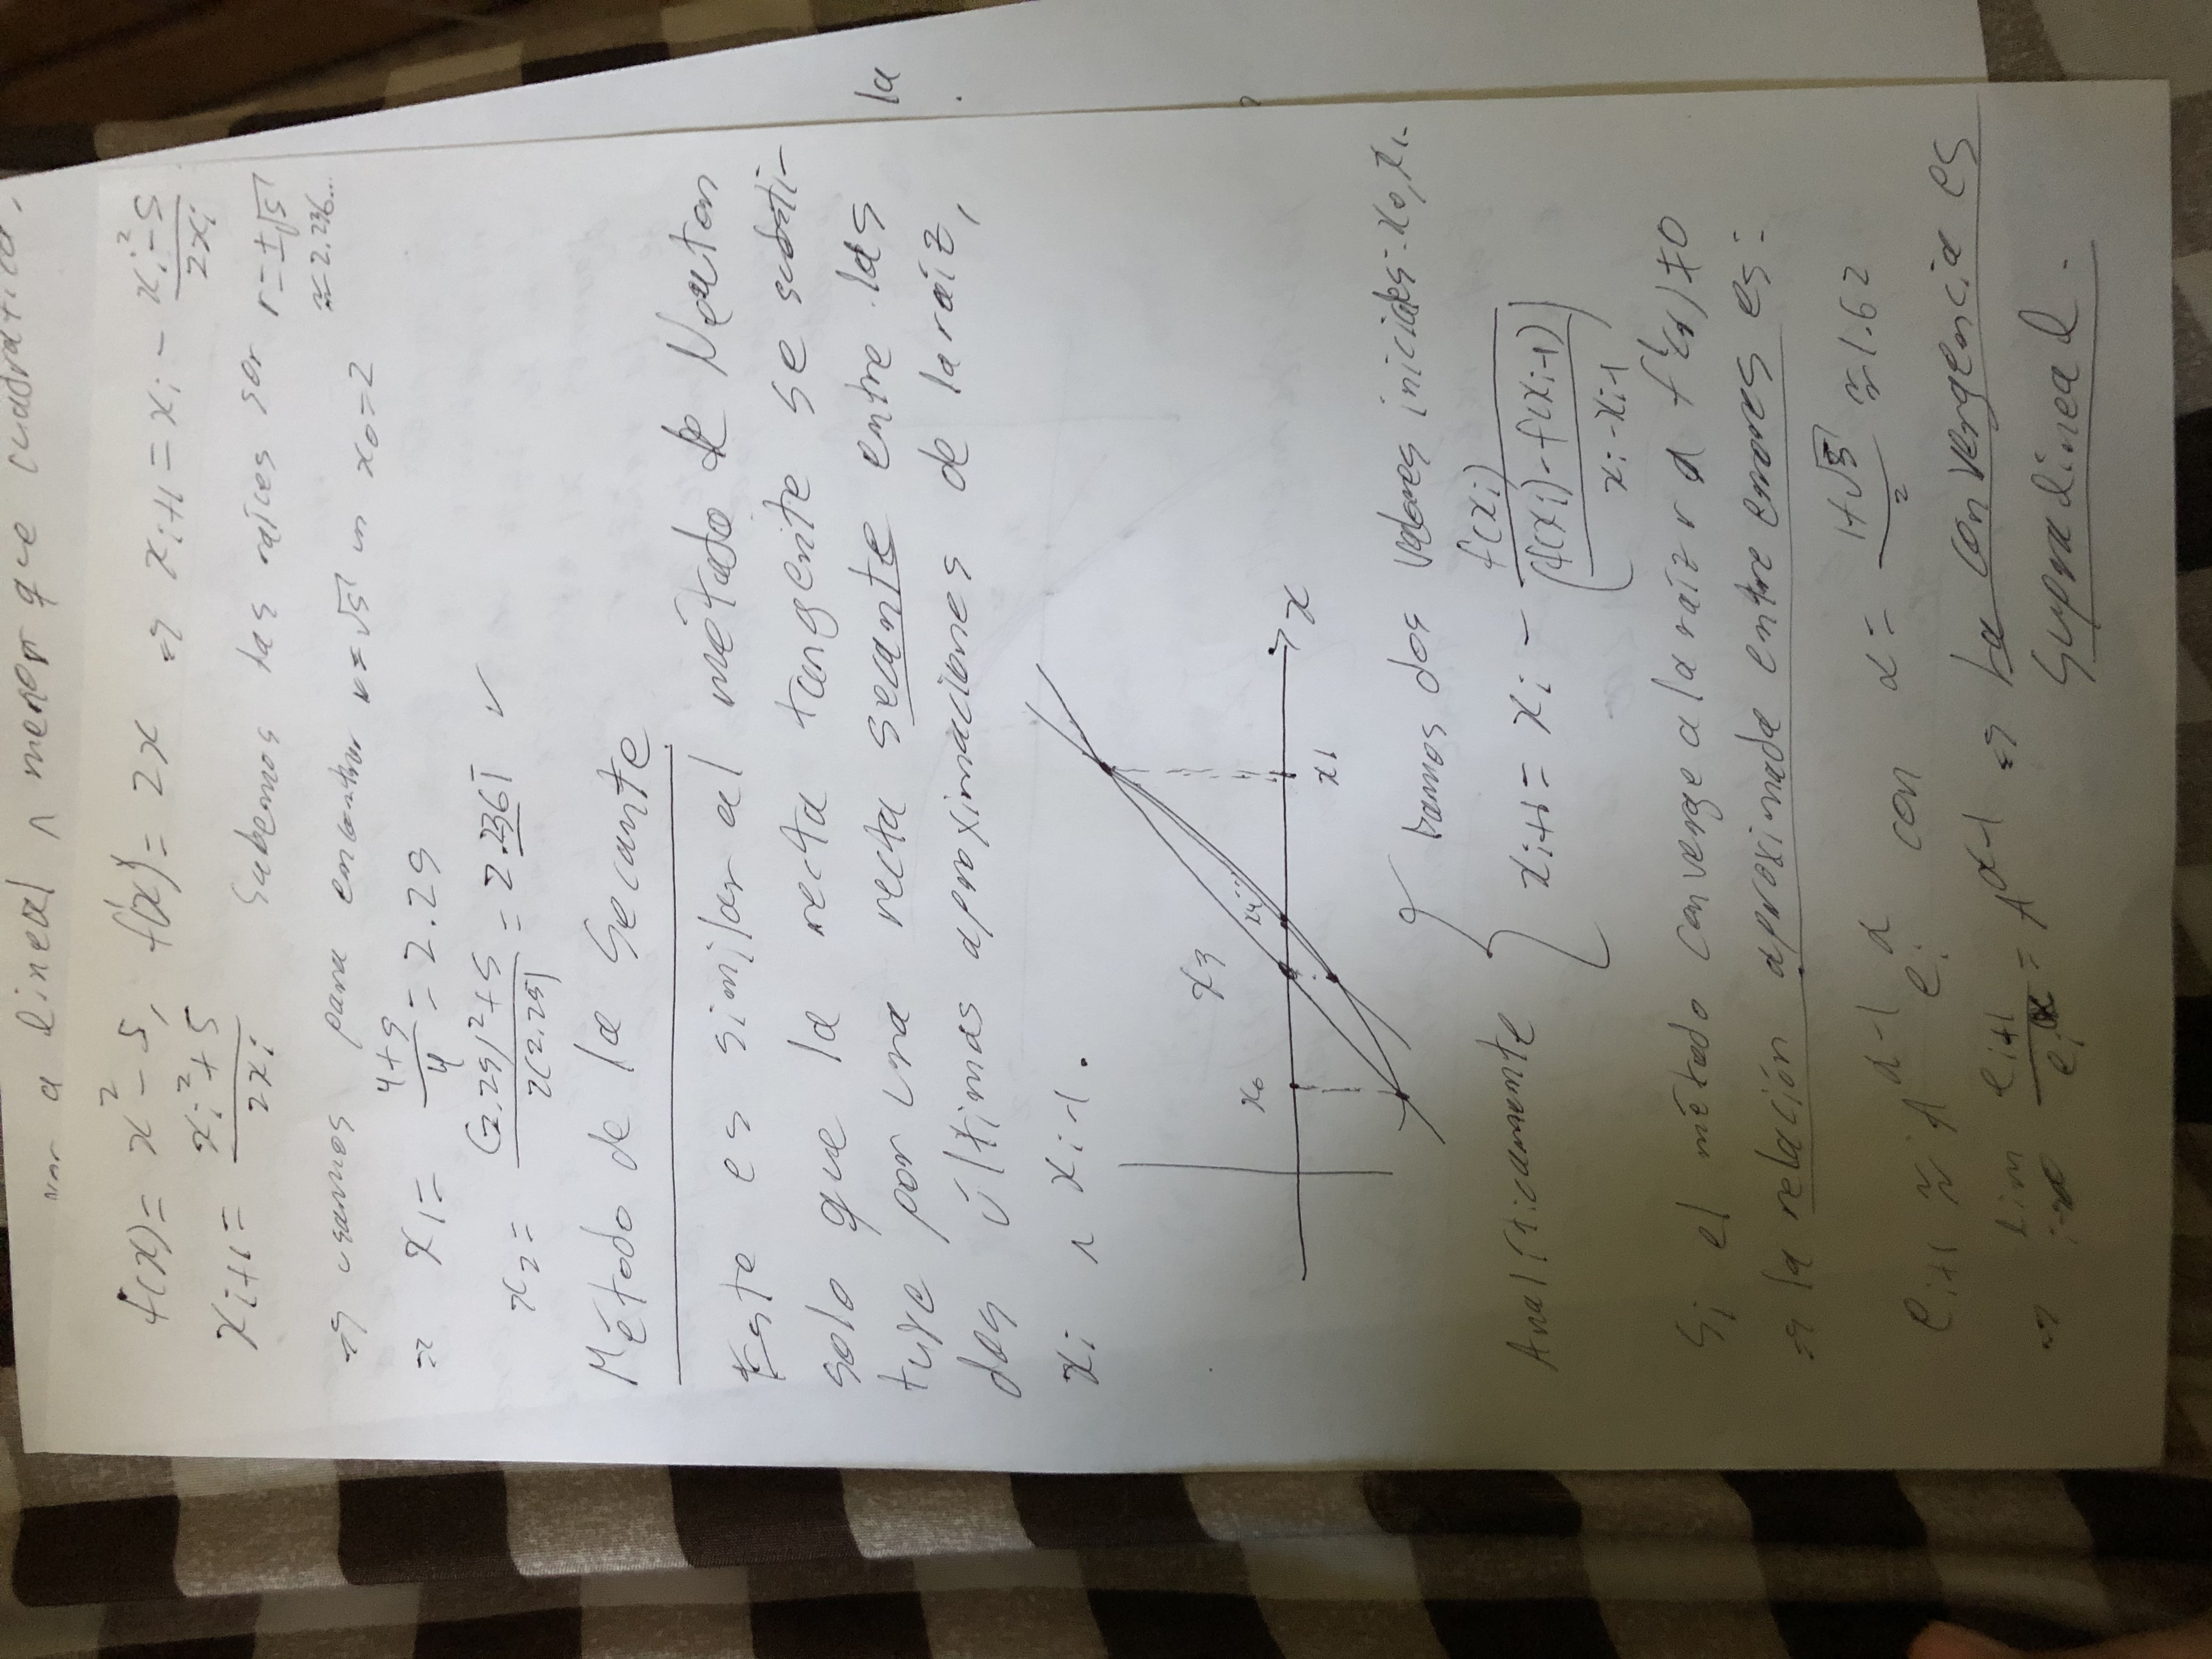 a lineal ∧ menor que cuadrática.
f(x) = x² - 5, f'(x) = 2x ⇒ x_{i+1} = x_i - (x_i² - 5)/(2x_i)
x_{i+1} = (x_i² + 5)/(2x_i) Sabemos las raíces son r = ±√5
≈ 2.236...
⇒ usamos para encontrar r = √5 un x_0 = 2
⇒ x_1 = (4+5)/4 = 2.25
x_2 = ((2.25)² + 5)/(2(2.25)) = 2.2361 ✓
Método de la Secante
Este es similar al método de Newton
solo que la recta tangente se substi-
tuye por una recta secante entre las
dos últimas aproximaciones de la raíz,
x_i ∧ x_{i-1}.
x_3
x_0 x_4
x
x_1
Damos dos valores iniciales: x_0, x_1.
Analíticamente { x_{i+1} = x_i - f(x_i)/((f(x_i) - f(x_{i-1}))/(x_i - x_{i-1}))
Si el método converge a la raíz r ∧ f'(r) ≠ 0
⇒ la relación aproximada entre errores es:
e_{i+1} ≈ A^{α-1} e_i^α con α = (1+√5)/2 ≈ 1.62
⇒ lim i→∞ e_{i+1}/e_i^α = A^{α-1} ⇒ La convergencia es
supralineal.
la